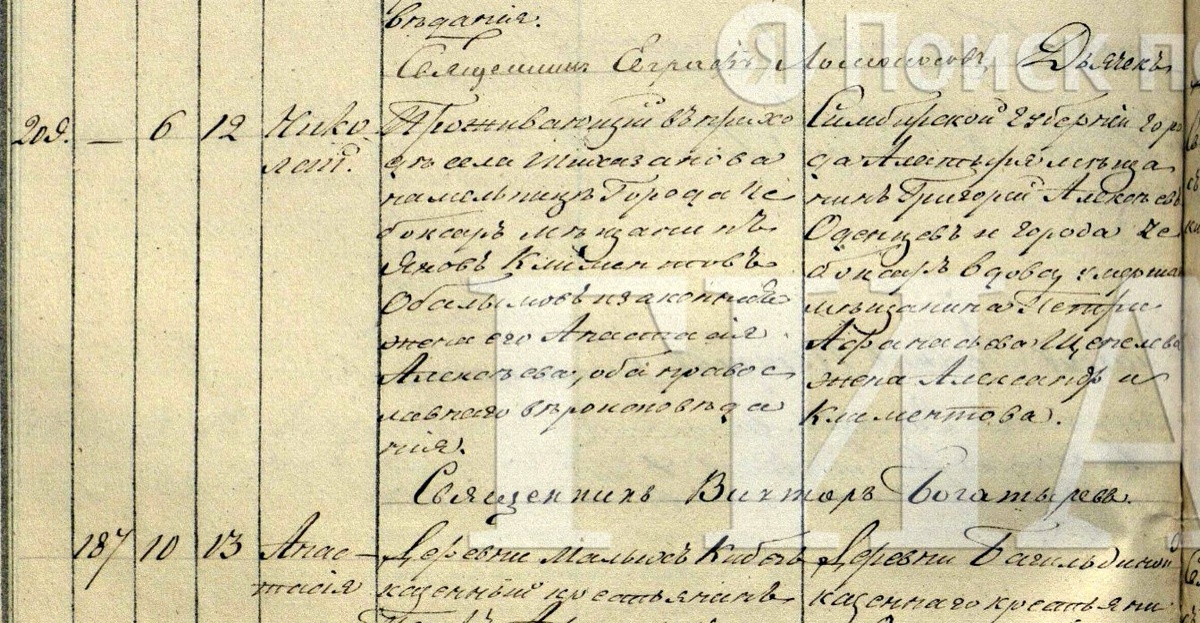 вѣданія.
Священникъ Евграфъ Ломоносовъ, Дьячекъ
209. — 6 12 Нико
лай.
Проживающій въ прихо
дѣ села Шихазанова
на мельницѣ Города Че
боксаръ мѣщанинъ
Яковъ Климентовъ
Обалымовъ и законная
жена его Анастасія
Алексѣева, оба правос
лавнаго вѣроисповѣда
нія.
Симбирской губерніи горо
да Алатыря мѣща
нинъ Григорій Алексѣевъ
Оденцевъ и города Че
боксаръ вдова умерша
мѣщанина Петра
Афанасьева Щепелева
жена Александра
Климентова.
Священникъ Викторъ Богатыревъ.
187 10 13 Анас—
тасія
Деревни Малыхъ Кибечь
казенный крестьянинъ
Деревни Бачильдиной
казеннаго крестьяни
Поиск п
ГИА